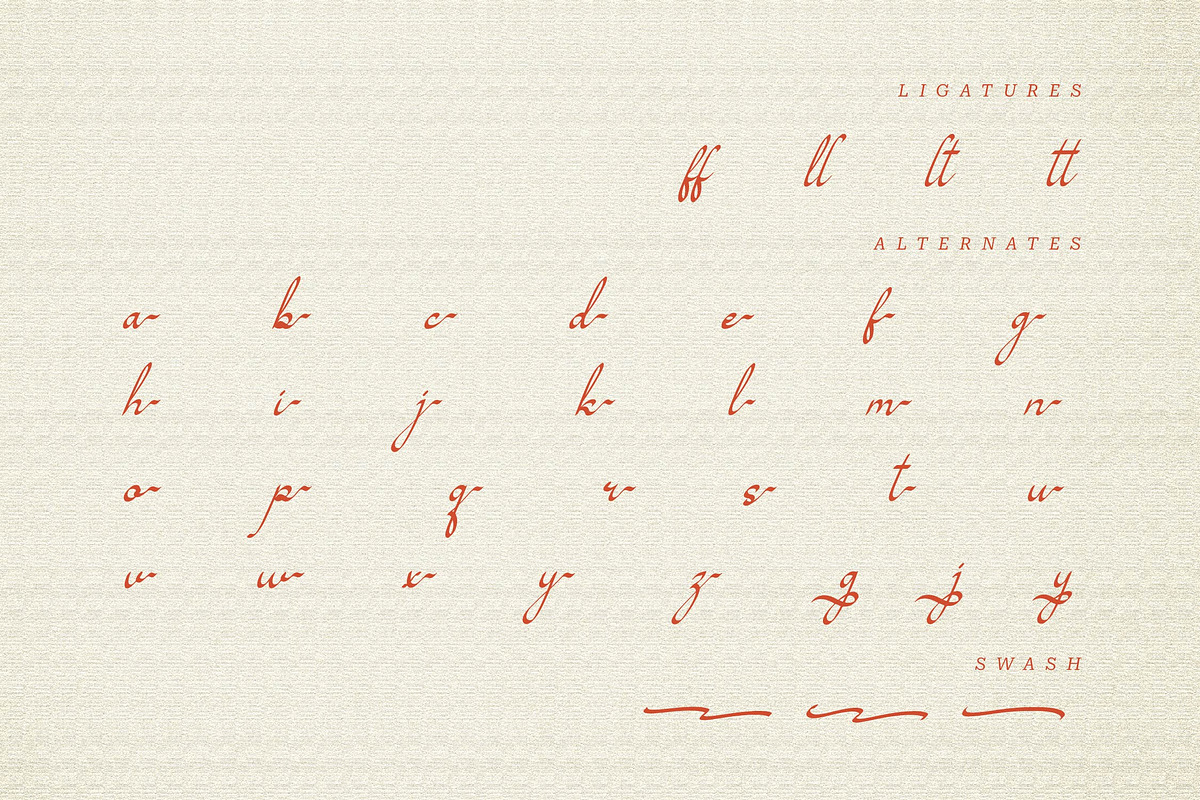 LIGATURES
ff ll lt tt
ALTERNATES
a b c d e f g
h i j k l m n
o p q r s t u
v w x y z g j y
SWASH